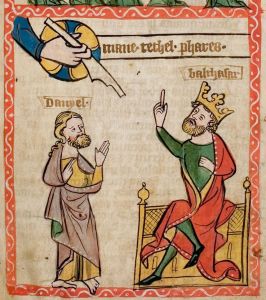 mane · techel · phares ·
balthasar
Danyel ·